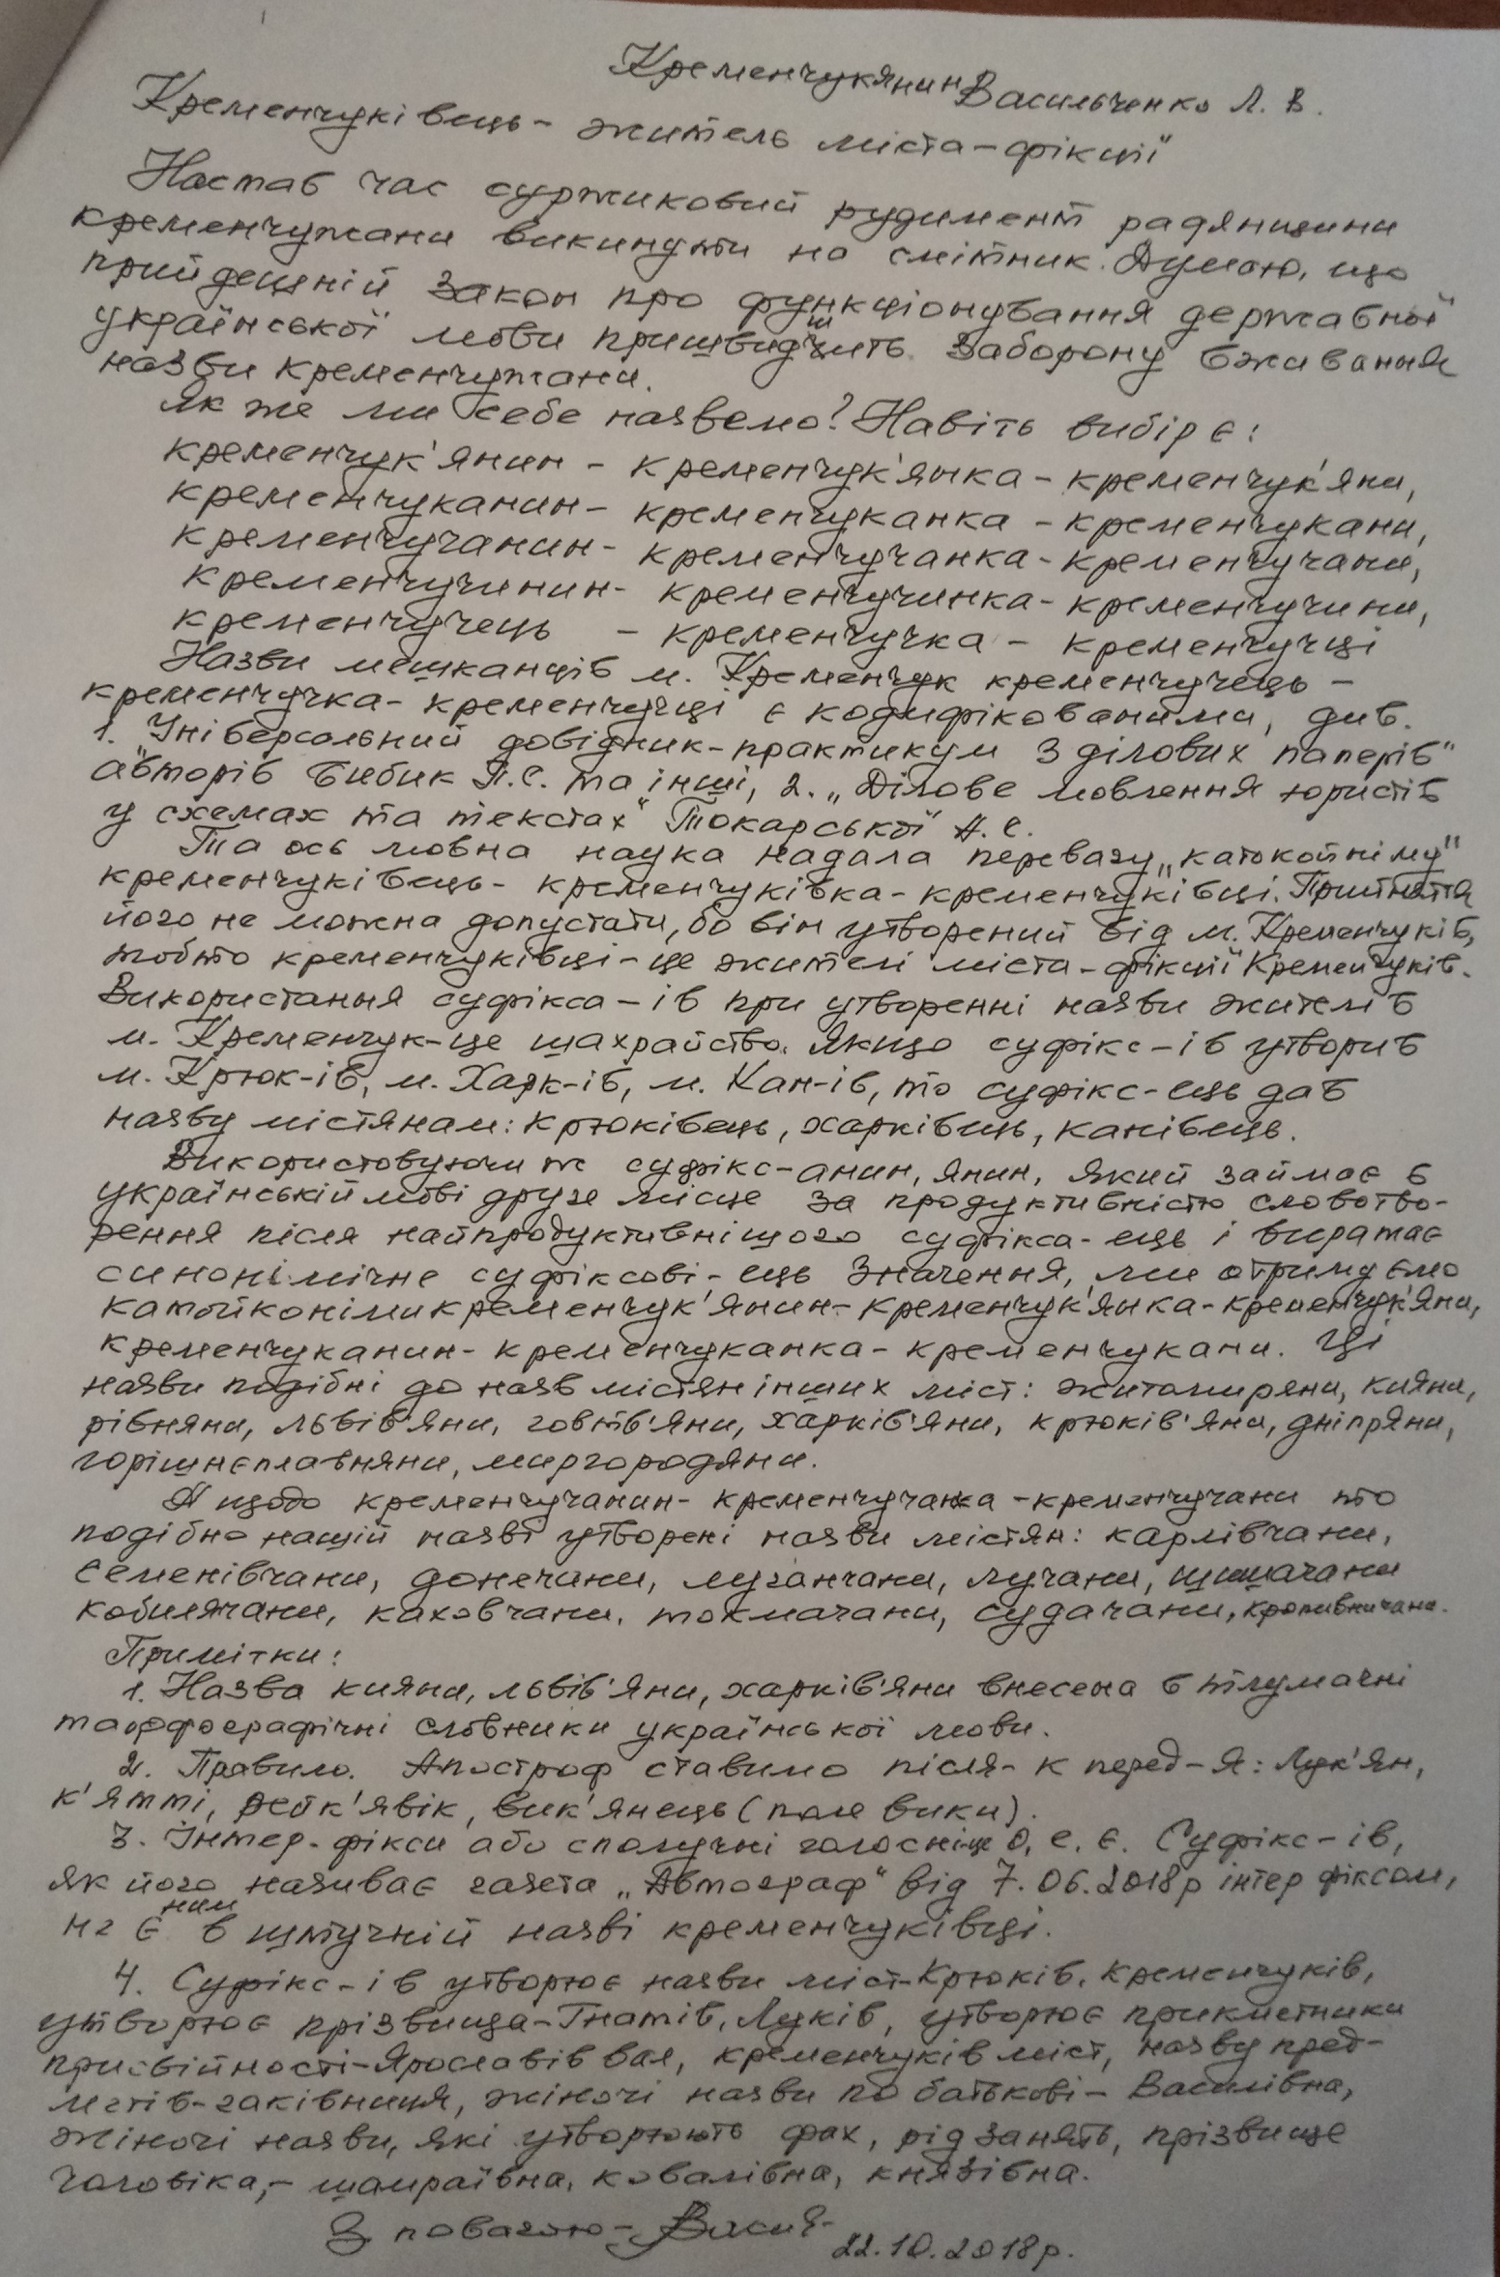 Кременчукянин Васильченко Л. В.
Кременчуківець - житель міста-фікції
Настав час суржиковий рудимент радянщини
кременчужани викинути на смітник. Думаю, що
прийдешній Закон про функціонування державної
української мови пришвидшить заборону вживання
назви кременчужани.
Як же ми себе назвемо? Навіть вибір є:
кременчук'янин - кременчук'янка - кременчук'яни,
кременчуканин - кременчуканка - кременчукани,
кременчучанин - кременчучанка - кременчучани,
кременчучинин - кременчучинка - кременчучини,
кременчучець - кременчучка - кременчучці
Назви мешканців м. Кременчук кременчучець -
кременчучка - кременчучці є кодифікованими, див.
1. Універсальний довідник-практикум з ділових паперів"
авторів Бибик С. та інші, 2. „Ділове мовлення юристів
у схемах та текстах" Токарської А. С.
Та ось мовна наука надала перевагу „катокойніму"
кременчуківець - кременчуківка - кременчуківці. Прийняття
його не можна допустати, бо він утворений від м. Кременчуків,
тобто кременчуківці - це жителі міста-фікції Кременчуків.
Використання суфікса -ів при утворенні назви жителів
м. Кременчук - це шахрайство. Якщо суфікс -ів утворив
м. Крюк-ів, м. Харк-ів, м. Кан-ів, то суфікс -ець дав
назву містянам: крюківець, харківець, канівець.
Використовуючи ж суфікс -анин, янин, який займає в
українській мові друге місце за продуктивністю словотво-
рення після найпродуктивнішого суфікса -ець і виражає
синонімічне суфіксові -ець значення, ми отримуємо
катойконіми кременчук'янин - кременчук'янка - кременчук'яни,
кременчуканин - кременчуканка - кременчукани. Ці
назви подібні до назв містян інших міст: житомиряни, кияни,
рівняни, львів'яни, говтв'яни, харків'яни, крюків'яни, дніпряни,
горішнєплавняни, миргородяни.
А щодо кременчучанин - кременчучанка - кременчучани то
подібно нашій назві утворені назви містян: карлівчани,
семенівчани, донечани, луганчани, лучани, шишачани
кобилячани, каховчани, токмачани, судачани, кропивничани.
Примітки:
1. Назва кияни, львів'яни, харків'яни внесена в тлумачні
та орфографічні словники української мови.
2. Правило. Апостроф ставимо після -к перед -я: Лук'ян,
к'ятті, рейк'явік, вик'янець (поле вики).
3. Інтер-фікси або сполучні голосні це о, е, є. Суфікс -ів,
як його називає газета „Автограф" від 7.06.2018р інтерфіксом,
не є ним в штучній назві кременчуківці.
4. Суфікс -ів утворює назви міст - Крюків, Кременчуків,
утворює прізвища - Гнатів, Луків, утворює прикметники
присвійності - Ярославів вал, кременчуків міст, назву пред-
метів - гаківниця, жіночі назви по батькові - Василівна,
жіночі назви, які утворюють фах, рід занять, прізвище
чоловіка, - шамраївна, ковалівна, князівна.
З повагою -
22.10.2018р.